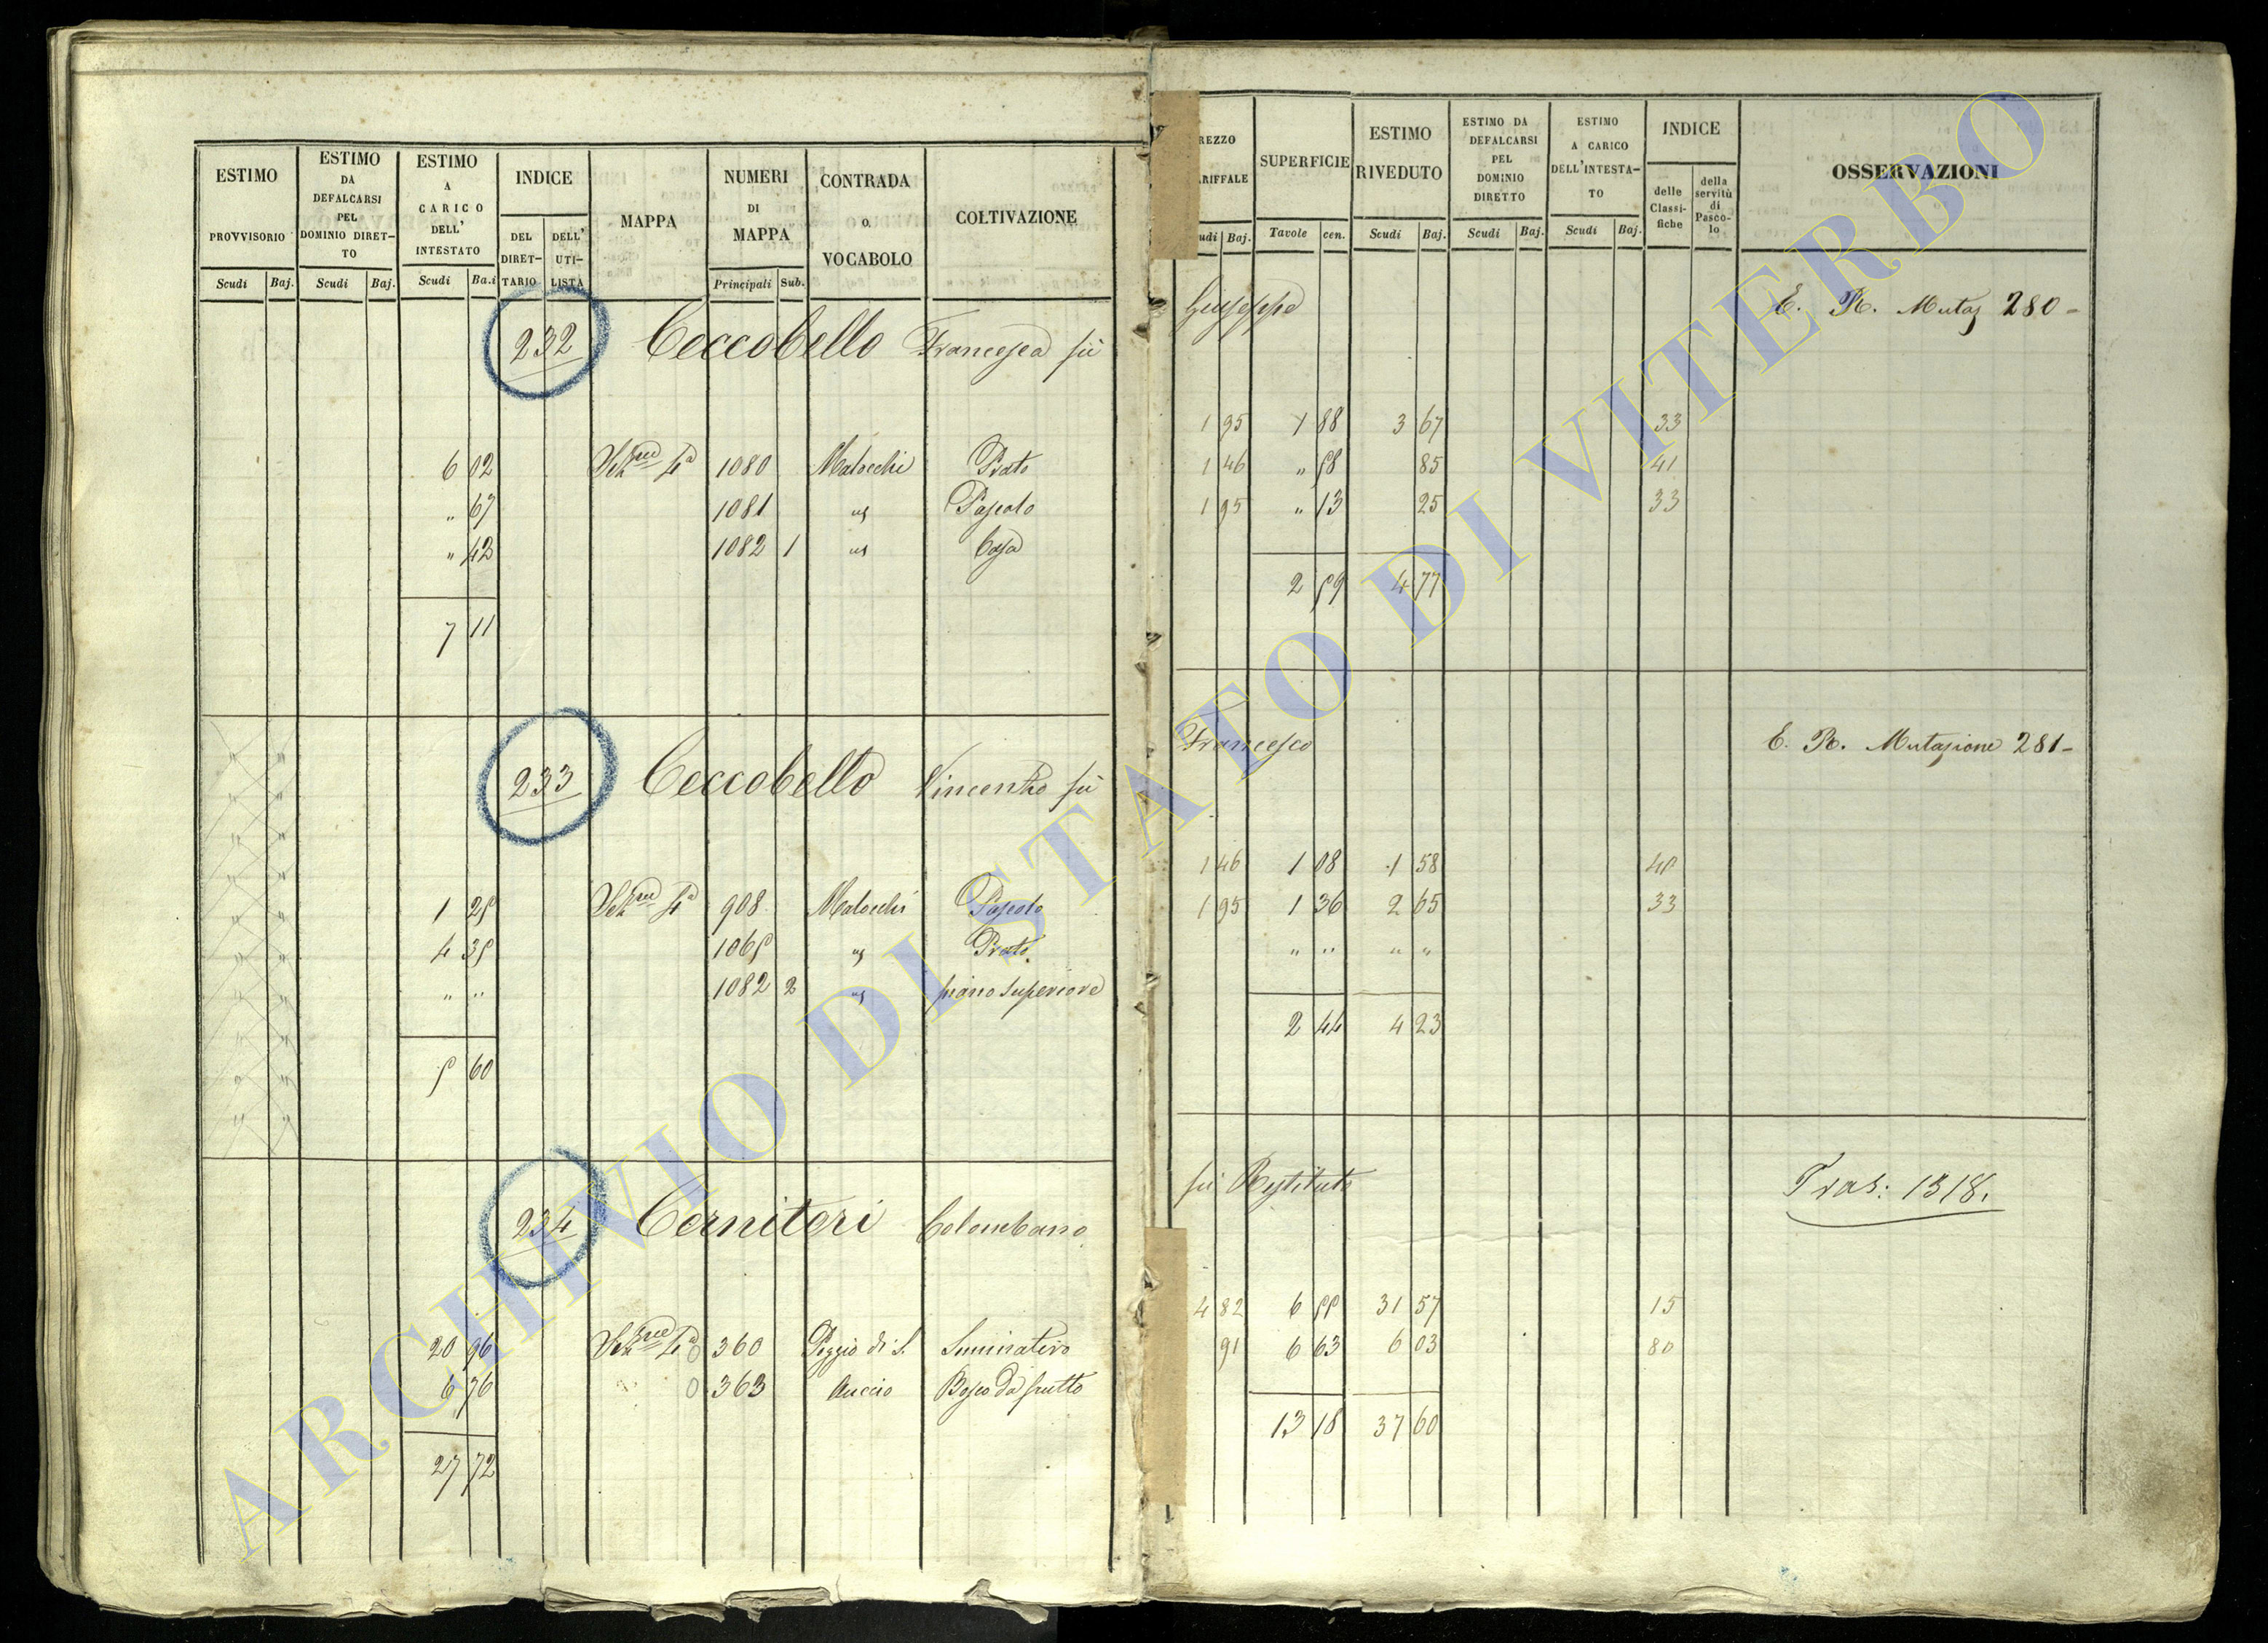 ESTIMO PROVVISORIO
Scudi Baj.
ESTIMO DA DEFALCARSI PEL DOMINIO DIRET-TO
Scudi Baj.
ESTIMO A CARICO DELL' INTESTATO
Scudi Ba.i
INDICE
DEL DIRET-TARIO
DELL' UTI-LISTA
MAPPA
NUMERI DI MAPPA
Principali Sub.
CONTRADA O VOCABOLO
COLTIVAZIONE
REZZO RIFFALE
udi Baj.
SUPERFICIE
Tavole cen.
ESTIMO RIVEDUTO
Scudi Baj.
ESTIMO DA DEFALCARSI PEL DOMINIO DIRETTO
Scudi Baj.
ESTIMO A CARICO DELL'INTESTA-TO
Scudi Baj.
INDICE
delle Classi-fiche
della servitù di Pasco-lo
OSSERVAZIONI
232 Ceccobello Francesca fù Giuseppe E. R. Mutaz 280 -
6 02 Sez.ne 4a 1080 Malocchi Prato 1 95 1 88 3 67 33
" 67 1081 Pascolo 1 46 " 58 85 41
" 42 1082 1 Casa 1 95 " 13 25 33
7 11 2 59 4 77
233 Ceccobello Vincenzo fù Francesco E. R. Mutazione 281 -
1 25 Sez.ne 4a 908 Malocchi Pascolo 1 46 1 08 1 58
4 35 1065 Prato 1 95 1 36 2 65 33
" " 1082 2 piano superiore " " " "
5 60 2 44 4 23
234 Cernitori Colombano fù Restituto Tras: 1318.
20 96 Sez.ne 4a 0 360 Poggio di S. Seminativo 4 82 6 55 31 57 15
6 76 0 363 Auccio Bosco da frutto 91 6 63 6 03 80
27 72 13 18 37 60
ARCHIVIO DI STATO DI VITERBO